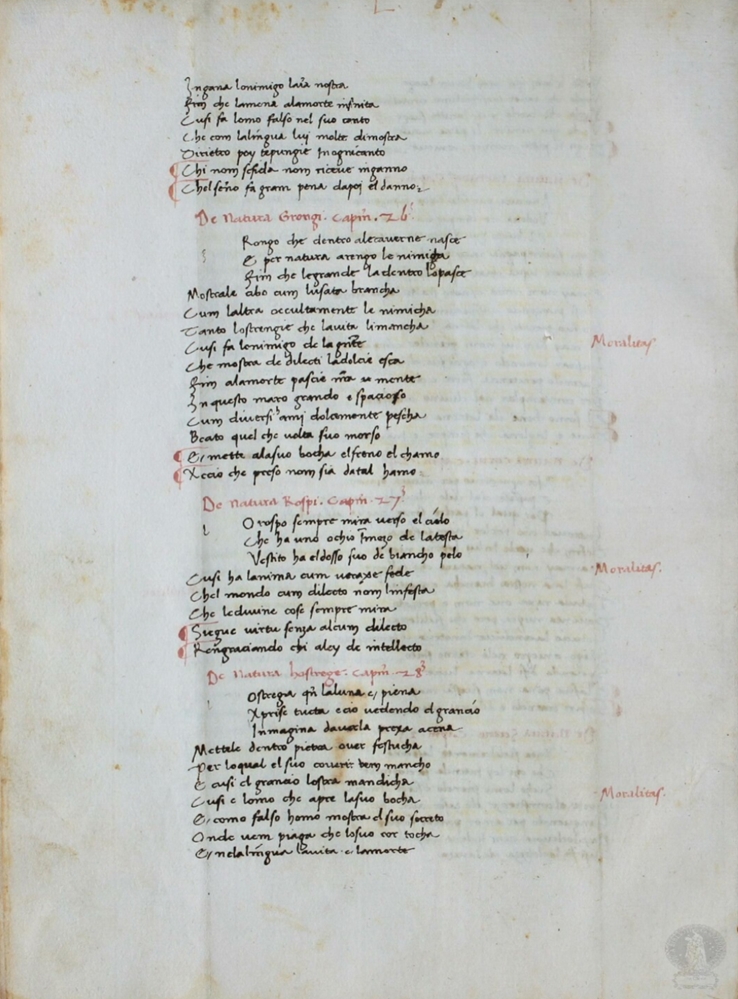 Ingana lonimigo laia nostra
Fim che lamena alamorte infinita
Cusi fa lomo falso nel suo canto
Che com lalingua luj molte dimostra
Dirietro poy tepungie Inognicanto
Chi nom sefida nom riceue inganno
Chel seño fa gram pena dapoj el danno
De natura Grongi. Capim. 26
Rongo che dentro alecauerne nasce
E per natura arengo le nimicha
Fim che legrande la dentro lopasce
Mostrale cibo cum lusata brancha
Cum laltra occultamente le nimicha
Tanto lostrengie che lauita limancha
Cusi fa lonimigo de la gente
Moralitas
Che mostra de dilecti ladolcie esca
Fim alamorte pascie nra mente
In questo maro grando e spacioso
Cum diuersi ami dolamente pescha
Beato quel che uolta suo morso
E mette alasuo bocha elfreno el chamo
Xccio che preso nom sia datal hamo
De natura Rospi. Capim. 27
O rospo sempre mira uerso el cielo
Che ha uno ochio Imezo de latesta
Vestito ha eldosso suo de biancho pelo
Cusi ha lanima cum uoraxe fede
Moralitas.
Chel mondo cum dilecto nom Limfesta
Che lediuine cose sempre mira
Siegue uirtu senza alcum dilecto
Rengraciando chi aley de intellecto
De natura hostrege. Capim. 28
Ostregia qn laluna e piena
Xprise tucta e cio uedendo el grancio
Inmagina dauerla prexa acena
Mettele dentro pietra ouer festucha
Per loqual el suo couerir uem mancho
E cusi el grancio lostra mandicha
Cusi e lomo che apre lasuo bocha
Moralitas.
E, como falso homo mostra el suo secreto
Onde uem piaga che losuo cor tocha
E nelalingua lauita e lamorte